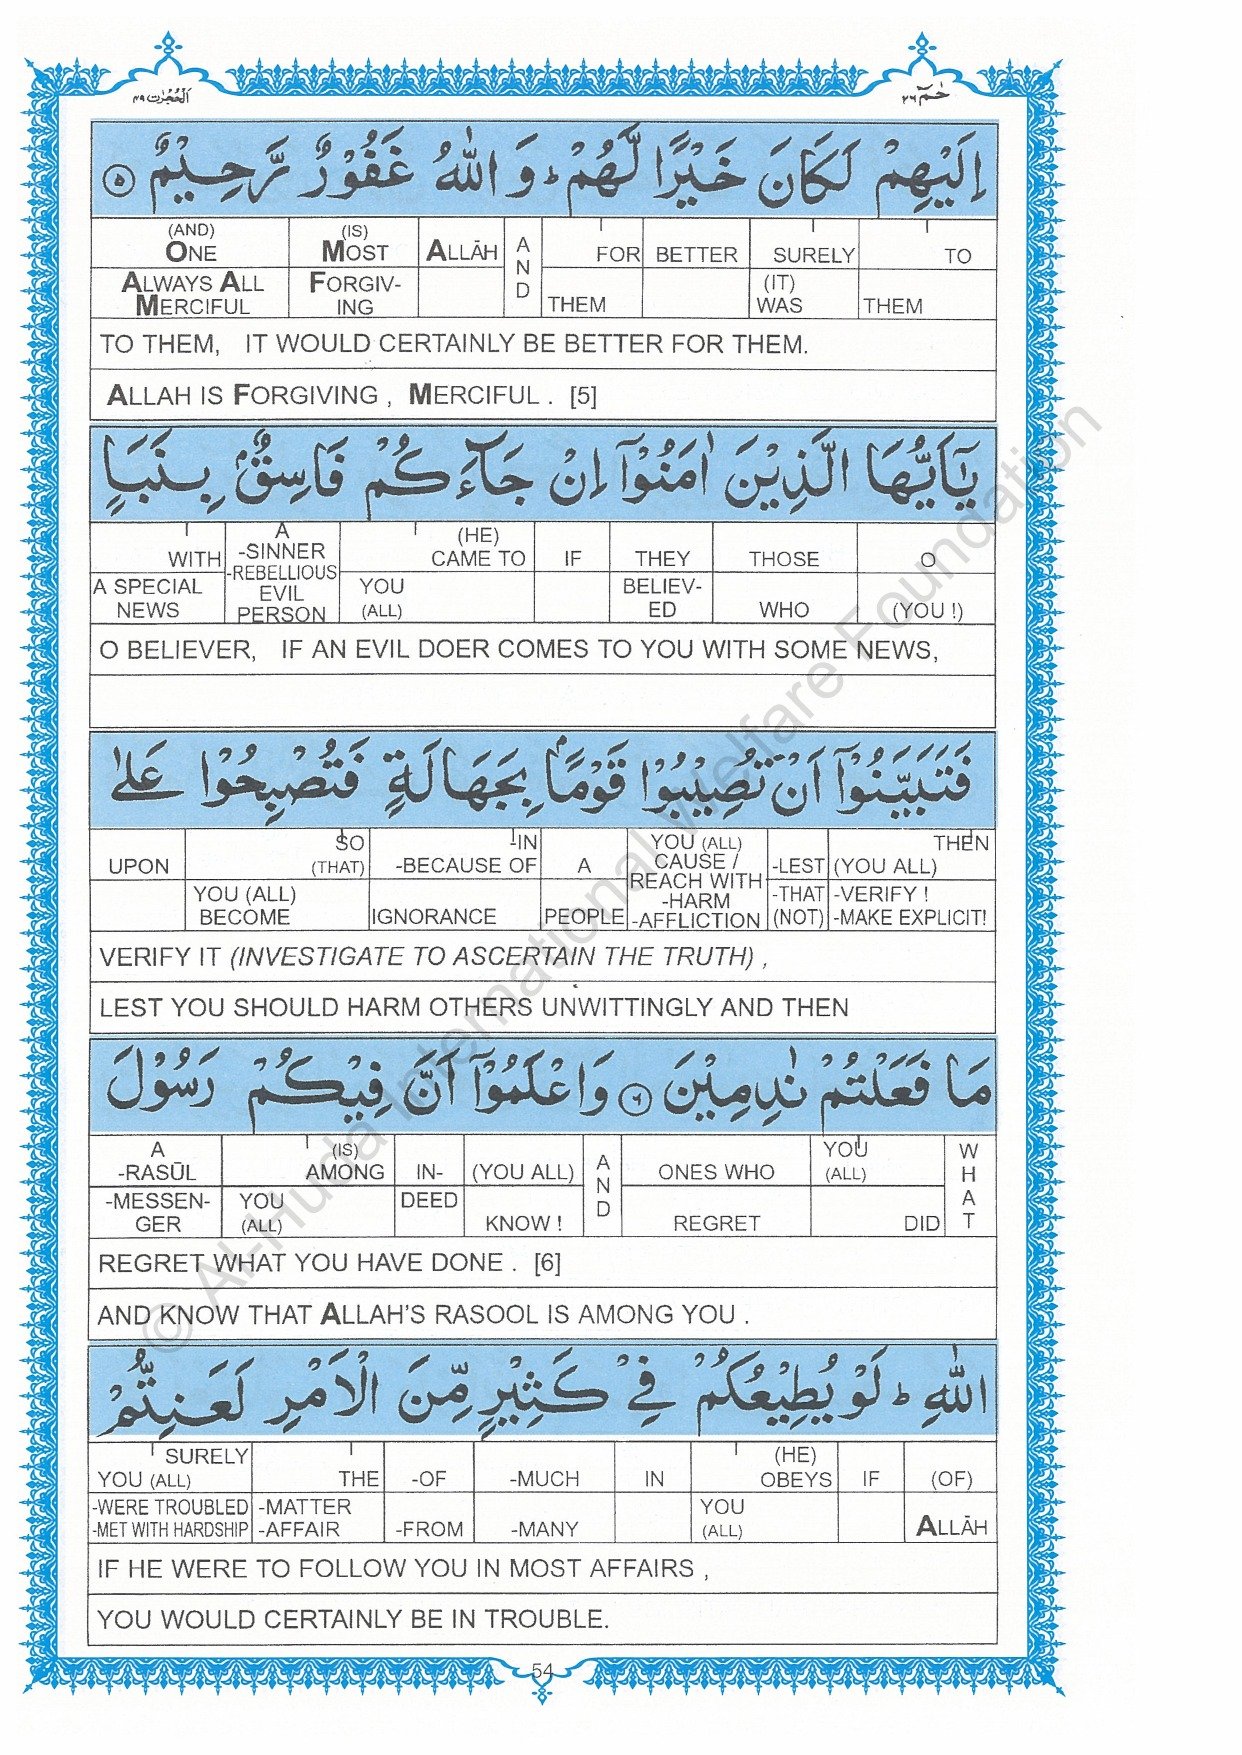 الحُجُرٰت ٤٩ حٰمٓ ٢٦
اِلَيْهِمْ لَكَانَ خَيْرًا لَّهُمْ ؕ وَ اللّٰهُ غَفُوْرٌ رَّحِيْمٌ ۝٥
(AND) ONE (IS) MOST ALLĀH AND FOR BETTER SURELY TO
ALWAYS ALL MERCIFUL FORGIV-ING THEM (IT) WAS THEM
TO THEM, IT WOULD CERTAINLY BE BETTER FOR THEM.
ALLAH IS FORGIVING , MERCIFUL . [5]
يٰۤاَيُّهَا الَّذِيْنَ اٰمَنُوْۤا اِنْ جَآءَكُمْ فَاسِقٌۢ بِنَبَاٍ
WITH A -SINNER -REBELLIOUS EVIL PERSON (HE) CAME TO IF THEY THOSE O
A SPECIAL NEWS YOU (ALL) BELIEV-ED WHO (YOU !)
O BELIEVER, IF AN EVIL DOER COMES TO YOU WITH SOME NEWS,
فَتَبَيَّنُوْۤا اَنْ تُصِيْبُوْا قَوْمًۢا بِجَهَالَةٍ فَتُصْبِحُوْا عَلٰى
UPON SO (THAT) -IN -BECAUSE OF A YOU (ALL) CAUSE / REACH WITH -HARM -AFFLICTION -LEST THEN (YOU ALL)
YOU (ALL) BECOME IGNORANCE PEOPLE -THAT (NOT) -VERIFY ! -MAKE EXPLICIT!
VERIFY IT (INVESTIGATE TO ASCERTAIN THE TRUTH) ,
LEST YOU SHOULD HARM OTHERS UNWITTINGLY AND THEN
مَا فَعَلْتُمْ نٰدِمِيْنَ ۝٦ وَ اعْلَمُوْۤا اَنَّ فِيْكُمْ رَسُوْلَ
A -RASŪL (IS) AMONG IN- (YOU ALL) AND ONES WHO YOU (ALL) WHAT
-MESSEN-GER YOU (ALL) DEED KNOW ! REGRET DID
REGRET WHAT YOU HAVE DONE . [6]
AND KNOW THAT ALLAH'S RASOOL IS AMONG YOU .
اللّٰهِ ؕ لَوْ يُطِيْعُكُمْ فِيْ كَثِيْرٍ مِّنَ الْاَمْرِ لَعَنِتُّمْ
SURELY YOU (ALL) THE -OF -MUCH IN (HE) OBEYS IF (OF)
-WERE TROUBLED -MET WITH HARDSHIP -MATTER -AFFAIR -FROM -MANY YOU (ALL) ALLĀH
IF HE WERE TO FOLLOW YOU IN MOST AFFAIRS ,
YOU WOULD CERTAINLY BE IN TROUBLE.
54
© Al-Huda International Welfare Foundation